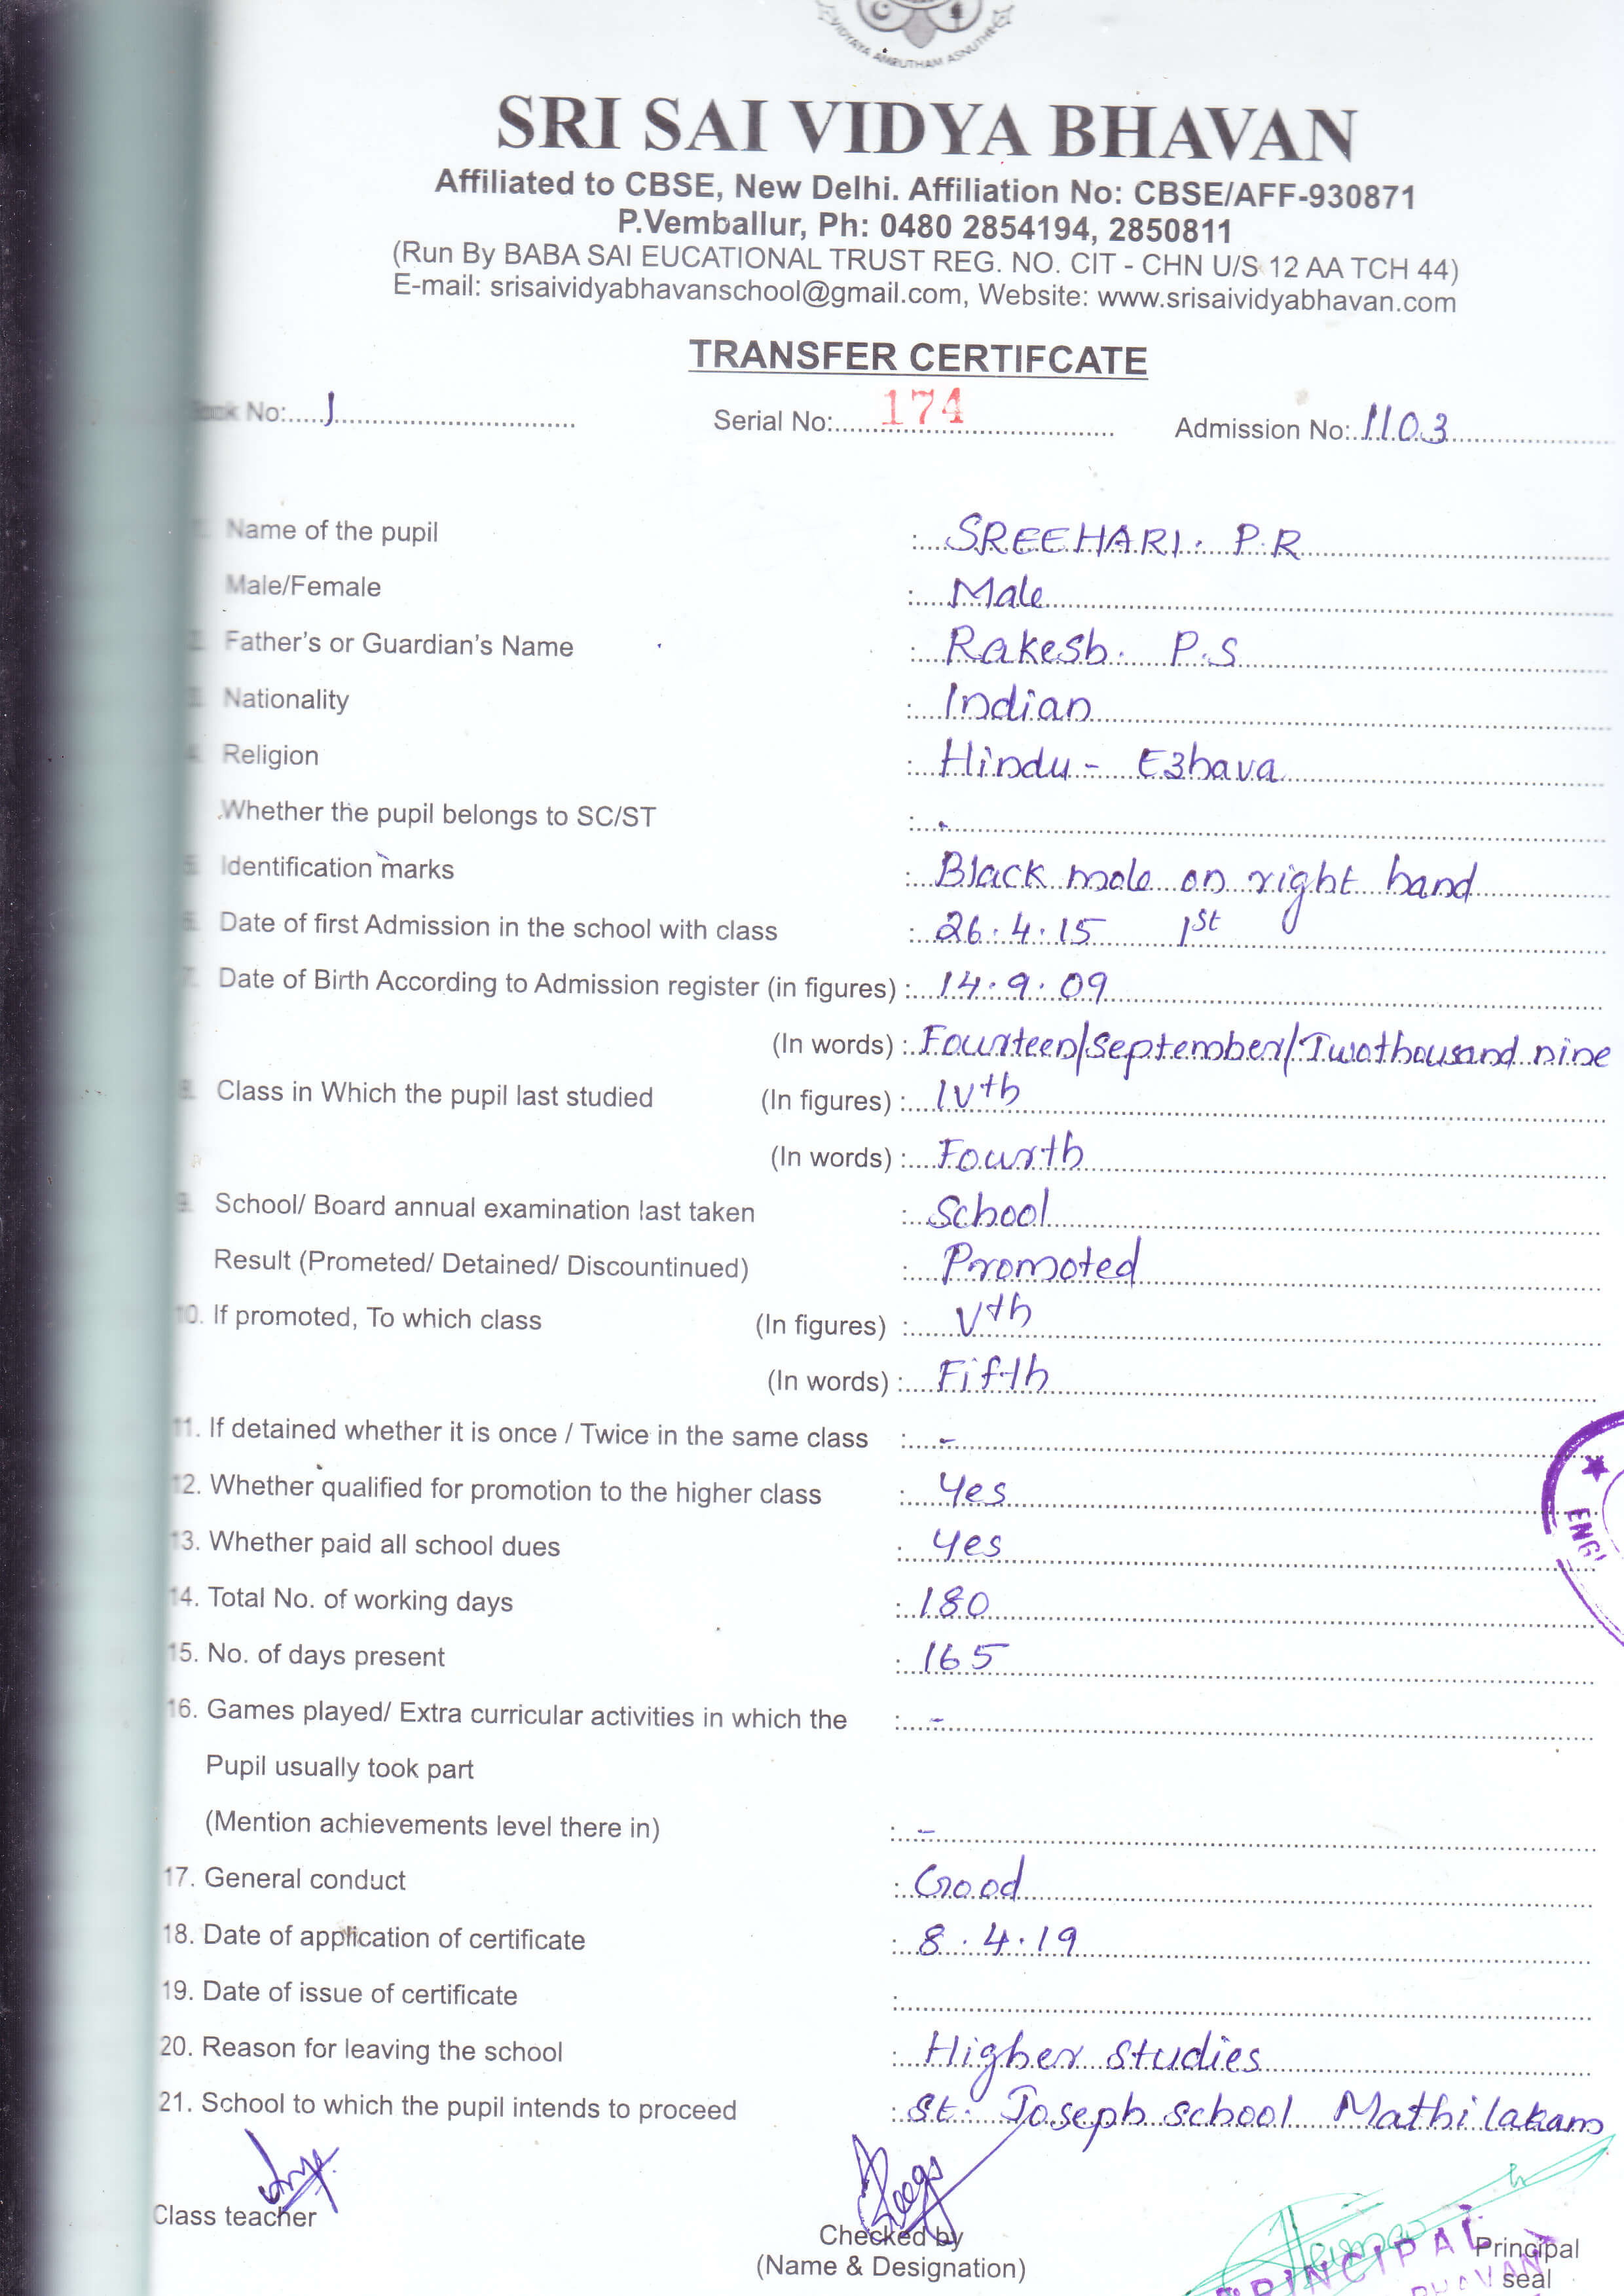 VIDYAYA AMRUTHAM ASNUTHE
SRI SAI VIDYA BHAVAN
Affiliated to CBSE, New Delhi. Affiliation No: CBSE/AFF-930871
P.Vemballur, Ph: 0480 2854194, 2850811
(Run By BABA SAI EUCATIONAL TRUST REG. NO. CIT - CHN U/S 12 AA TCH 44)
E-mail: srisaividyabhavanschool@gmail.com, Website: www.srisaividyabhavan.com
TRANSFER CERTIFCATE
Book No: 1 Serial No: 174 Admission No: 1103
Name of the pupil : SREEHARI. P.R
Male/Female : Male
Father's or Guardian's Name : Rakesh. P.S
3. Nationality : Indian
4. Religion : Hindu - Ezhava
Whether the pupil belongs to SC/ST : -
5. Identification marks : Black mole on right hand
6. Date of first Admission in the school with class : 26.4.15 1st
7. Date of Birth According to Admission register (in figures) : 14.9.09
(In words) : Fourteen/September/Twothousand nine
8. Class in Which the pupil last studied (In figures) : IVth
(In words) : Fourth
9. School/ Board annual examination last taken : School
Result (Prometed/ Detained/ Discountinued) : Promoted
10. If promoted, To which class (In figures) : Vth
(In words) : Fifth
11. If detained whether it is once / Twice in the same class : -
12. Whether qualified for promotion to the higher class : Yes
13. Whether paid all school dues : Yes
14. Total No. of working days : 180
15. No. of days present : 165
16. Games played/ Extra curricular activities in which the : -
Pupil usually took part
(Mention achievements level there in) : -
17. General conduct : Good
18. Date of application of certificate : 8.4.19
19. Date of issue of certificate :
20. Reason for leaving the school : Higher studies
21. School to which the pupil intends to proceed : St. Joseph school Mathilakam
Class teacher
Checked by
(Name & Designation)
PRINCIPAL
Principal
seal